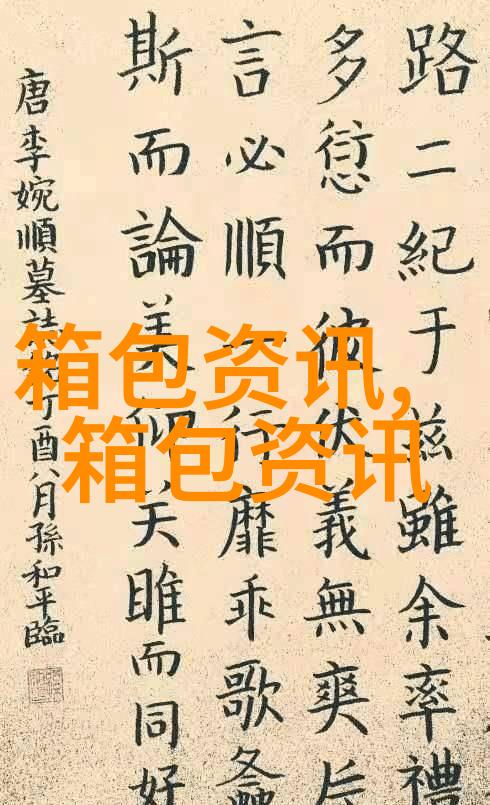 路二紀于兹雖余率禮
多愆而彼伏義無爽
言必順一行靡乖歌
斯而論美关雎而同好
唐李婉順墓誌丁酉八月孫和平臨
箱包资讯,
箱包资讯